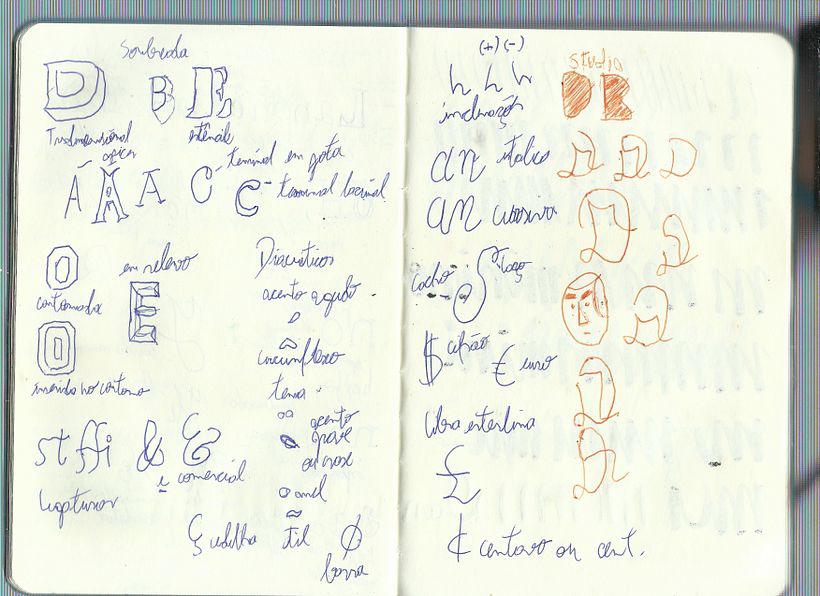 Sombreada
D B E
Tridimensional
estêncil
ápice
A A A
C terminal em gota
C terminal lacrimal
O
contornada
em relevo
E
O
inserida no contorno
st ffi & &
e comercial
Ligaturas
Diacríticos
acento agudo
circunflexo
trema
acento
grave
ou crase
anel
Ç cedilha
til
Ø
barra
(+) (-)
h h h
inclinação
an itálico
an cursiva
cacho
laço
$ cifrão
€ euro
libra esterlina
£
¢ centavo ou cent.
studio
D R